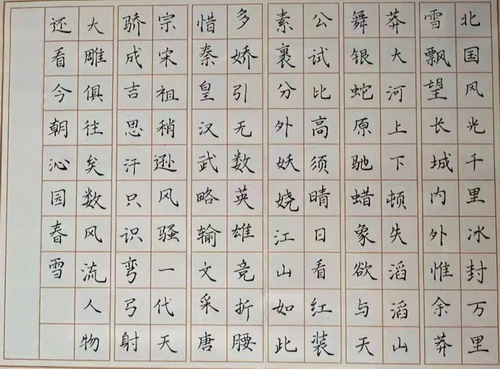 北国风光千里冰封万里
雪飘望长城内外惟余莽
莽大河上下顿失滔滔山
舞银蛇原驰蜡象欲与天
公试比高须晴日看红装
素裹分外妖娆江山如此
多娇引无数英雄竞折腰
惜秦皇汉武略输文采唐
宗宋祖稍逊风骚一代天
骄成吉思汗只识弯弓射
大雕俱往矣数风流人物
还看今朝沁园春雪